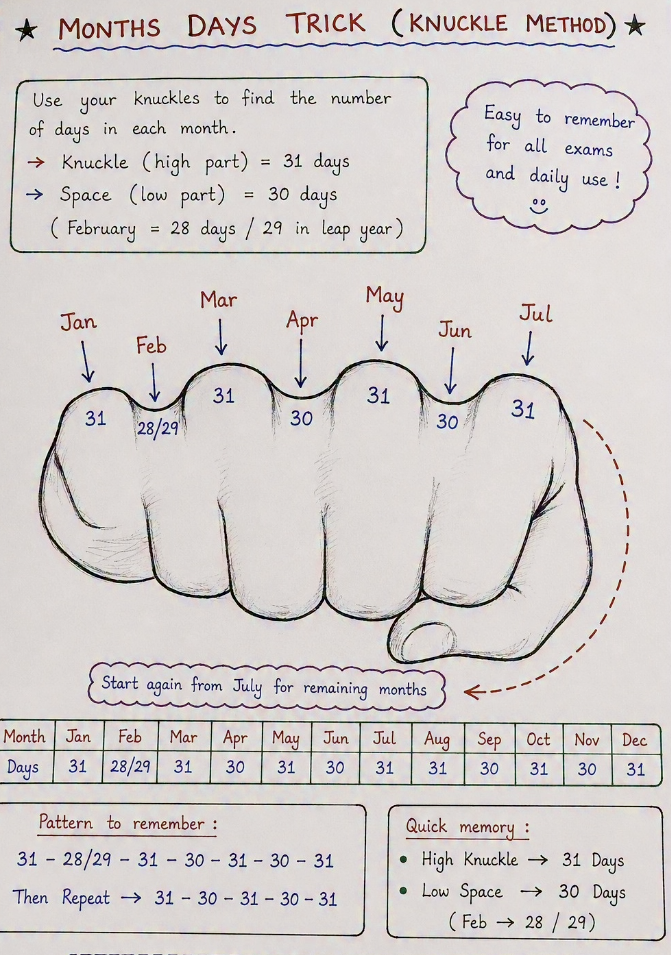 ★ MONTHS DAYS TRICK (KNUCKLE METHOD) ★
Use your knuckles to find the number
of days in each month.
→ Knuckle (high part) = 31 days
→ Space (low part) = 30 days
( February = 28 days / 29 in leap year )
Easy to remember
for all exams
and daily use !
Jan Feb Mar Apr May Jun Jul
31 28/29 31 30 31 30 31
Start again from July for remaining months
Month Jan Feb Mar Apr May Jun Jul Aug Sep Oct Nov Dec
Days 31 28/29 31 30 31 30 31 31 30 31 30 31
Pattern to remember :
31 - 28/29 - 31 - 30 - 31 - 30 - 31
Then Repeat → 31 - 30 - 31 - 30 - 31
Quick memory :
• High Knuckle → 31 Days
• Low Space → 30 Days
( Feb → 28 / 29 )